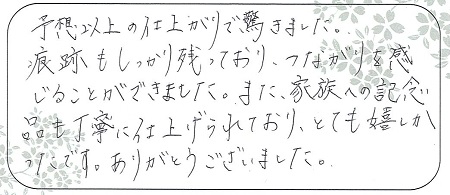 予想以上の仕上がりで驚きました。
痕跡もしっかり残っており、つながりを感
じることができました。また、家族への記念
品も丁寧に仕上げられており、とても嬉しか
ったです。ありがとうございました。